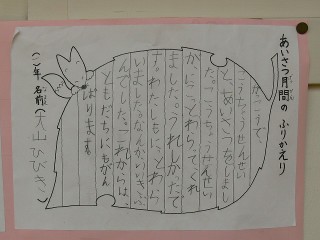 あいさつ月間の ふりかえり
がっこうで、
こうちょうせんせい
と、あいさつをしまし
た。こうちょうせんせい
が、にこっとわらってくれ
ました。うれしかったで
す。わたしもにこっとわら
いました。なんかいいきぶ
んでした。これからは、
ともだちにもがん
ばります。
(一)年 名前(大山ひびき)